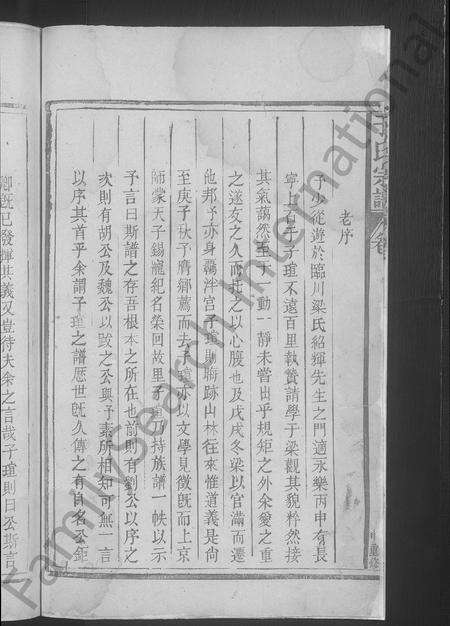 老序
予少從遊於臨川梁氏紹輝先生之門適永樂丙申有長
寧上舍王子瑄不遠百里執贄請學于梁觀其貌粹然接
其氣藹然至于一動一靜未嘗出乎規矩之外余愛之重
之遂友之久而托之以心腹也及戊戌冬梁以官滿而遷
他邦予亦身羈泮宫子瑄則斂跡山林往來惟道義是尚
至庚子秋予膺鄉薦而去子瑄亦以文學見徵旣而上京
師蒙天子錫寵紀名榮回故里子瑄乃持族譜一帙以示
予言曰斯譜之存吾根本之所在也前則有劉公以序之
次則有胡公及魏公以跋之公與予素所相知可無一言
以序其首乎余謂子瑄之譜歷世旣久傳之有自名公鉅
卿旣已發揮其義又豈待夫余之言哉子瑄則曰不斯言
氏宗譜
卷
FamilySearch International